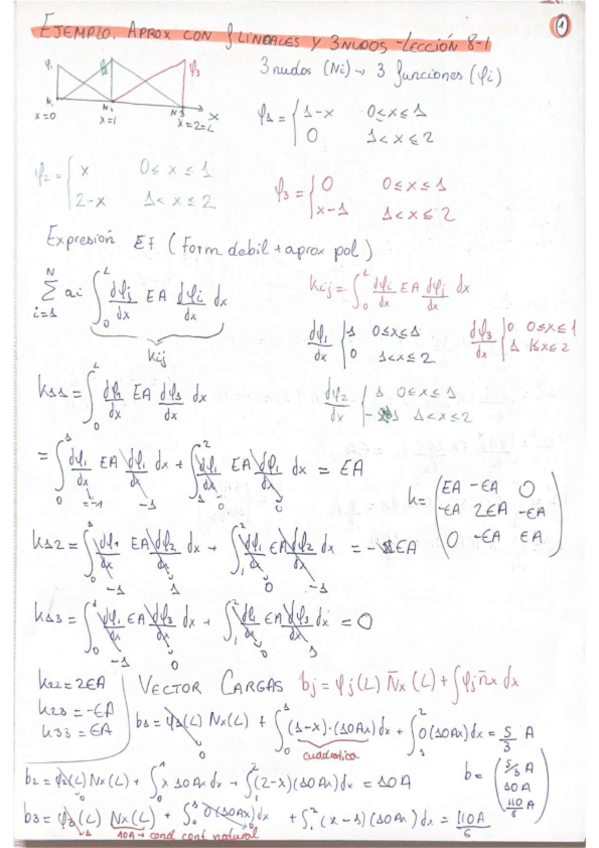 EJEMPLO. APROX CON f LINEALES Y 3 NUDOS - LECCIÓN 8-1
1
φ₁ φ₂ φ₃
N₁ N₂ N3 x
x=0 x=1 x=2=L
3 nudos (Ni) → 3 funciones (φi)
φ1 = { 1-x 0≤x≤1
0 1<x≤2
φ2 = { x 0≤x≤1
2-x 1<x≤2
φ3 = { 0 0≤x≤1
x-1 1<x≤2
Expresión EF (Form debil + aprox pol)
N Σ i=1 ai ∫₀ᴸ dφj/dx EA dφi/dx dx
kij
kij = ∫₀ᴸ dφi/dx EA dφj/dx dx
dφ1/dx { 1 0≤x≤1
0 1<x≤2
dφ3/dx { 0 0≤x≤1
1 1≤x≤2
k11 = ∫₀ᴸ dφ1/dx EA dφ1/dx dx
dφ2/dx { 1 0≤x≤1
-1 1<x≤2
= ∫₀¹ dφ1/dx EA dφ1/dx dx + ∫₁² dφ1/dx EA dφ1/dx dx = EA
=-1 -1 =0 0
k= ( EA -EA 0
-EA 2EA -EA
0 -EA EA )
k12 = ∫₀¹ dφ1/dx EA dφ2/dx dx + ∫₁² dφ1/dx EA dφ2/dx dx = -EA
-1 1 0 -1
k13 = ∫₀¹ dφ1/dx EA dφ3/dx dx + ∫₁² dφ1/dx EA dφ3/dx dx = 0
-1 0 0 1
k22 = 2EA
k23 = -EA
k33 = EA
VECTOR CARGAS bj = φj(L) N̄x(L) + ∫φj n̄x dx
b1 = φ1(L) Nx(L) + ∫₀¹ (1-x)·(10Ax)dx + ∫₁² 0(10Ax)dx = 5/3 A
0 cuadratica
b2 = φ2(L) Nx(L) + ∫₀¹ x 10Ax dx + ∫₁² (2-x)(10Ax)dx = 10A
0
b= ( 5/3 A
10A
110/6 A )
b3 = φ3(L) Nx(L) + ∫₀¹ 0(10Ax)dx + ∫₁² (x-1)(10Ax) dx = 110A/6
1 10A → cond cont natural 0